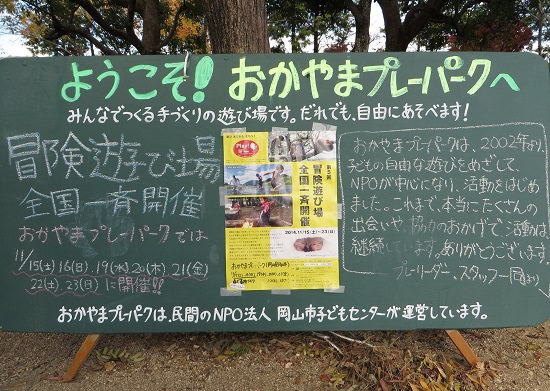 ようこそ! おかやまプレーパークへ
みんなでつくる手づくりの遊び場です。だれでも、自由にあそべます!
冒険遊び場
全国一斉開催
おかやまプレーパークでは
11/15(土)16(日).19(水).20(木).21(金)
22(土).23(日)に開催!!
Play!
第5回
冒険遊び場
全国一斉開催
2014.11/15(土)〜23(日)
おかやまプレーパークは、2002年より、
子どもの自由な遊びをめざして
NPOが中心になり、活動をはじめ
ました。これまで、本当にたくさんの
出会いや、協力のおかげで、活動は
継続
ありがとうございます
プレーリーダー、スタッフ一同より
おかやまプレーパークは、民間のNPO法人 岡山市子どもセンターが運営しています。